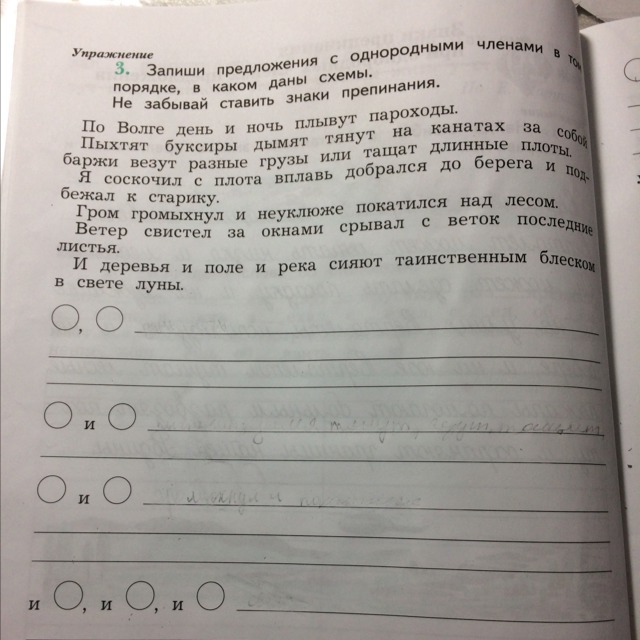 Упражнение
3. Запиши предложения с однородными членами в том
порядке, в каком даны схемы.
Не забывай ставить знаки препинания.
По Волге день и ночь плывут пароходы.
Пыхтят буксиры дымят тянут на канатах за собой
баржи везут разные грузы или тащат длинные плоты.
Я соскочил с плота вплавь добрался до берега и под-
бежал к старику.
Гром громыхнул и неуклюже покатился над лесом.
Ветер свистел за окнами срывал с веток последние
листья.
И деревья и поле и река сияют таинственным блеском
в свете луны.
,
и
и
и , и , и